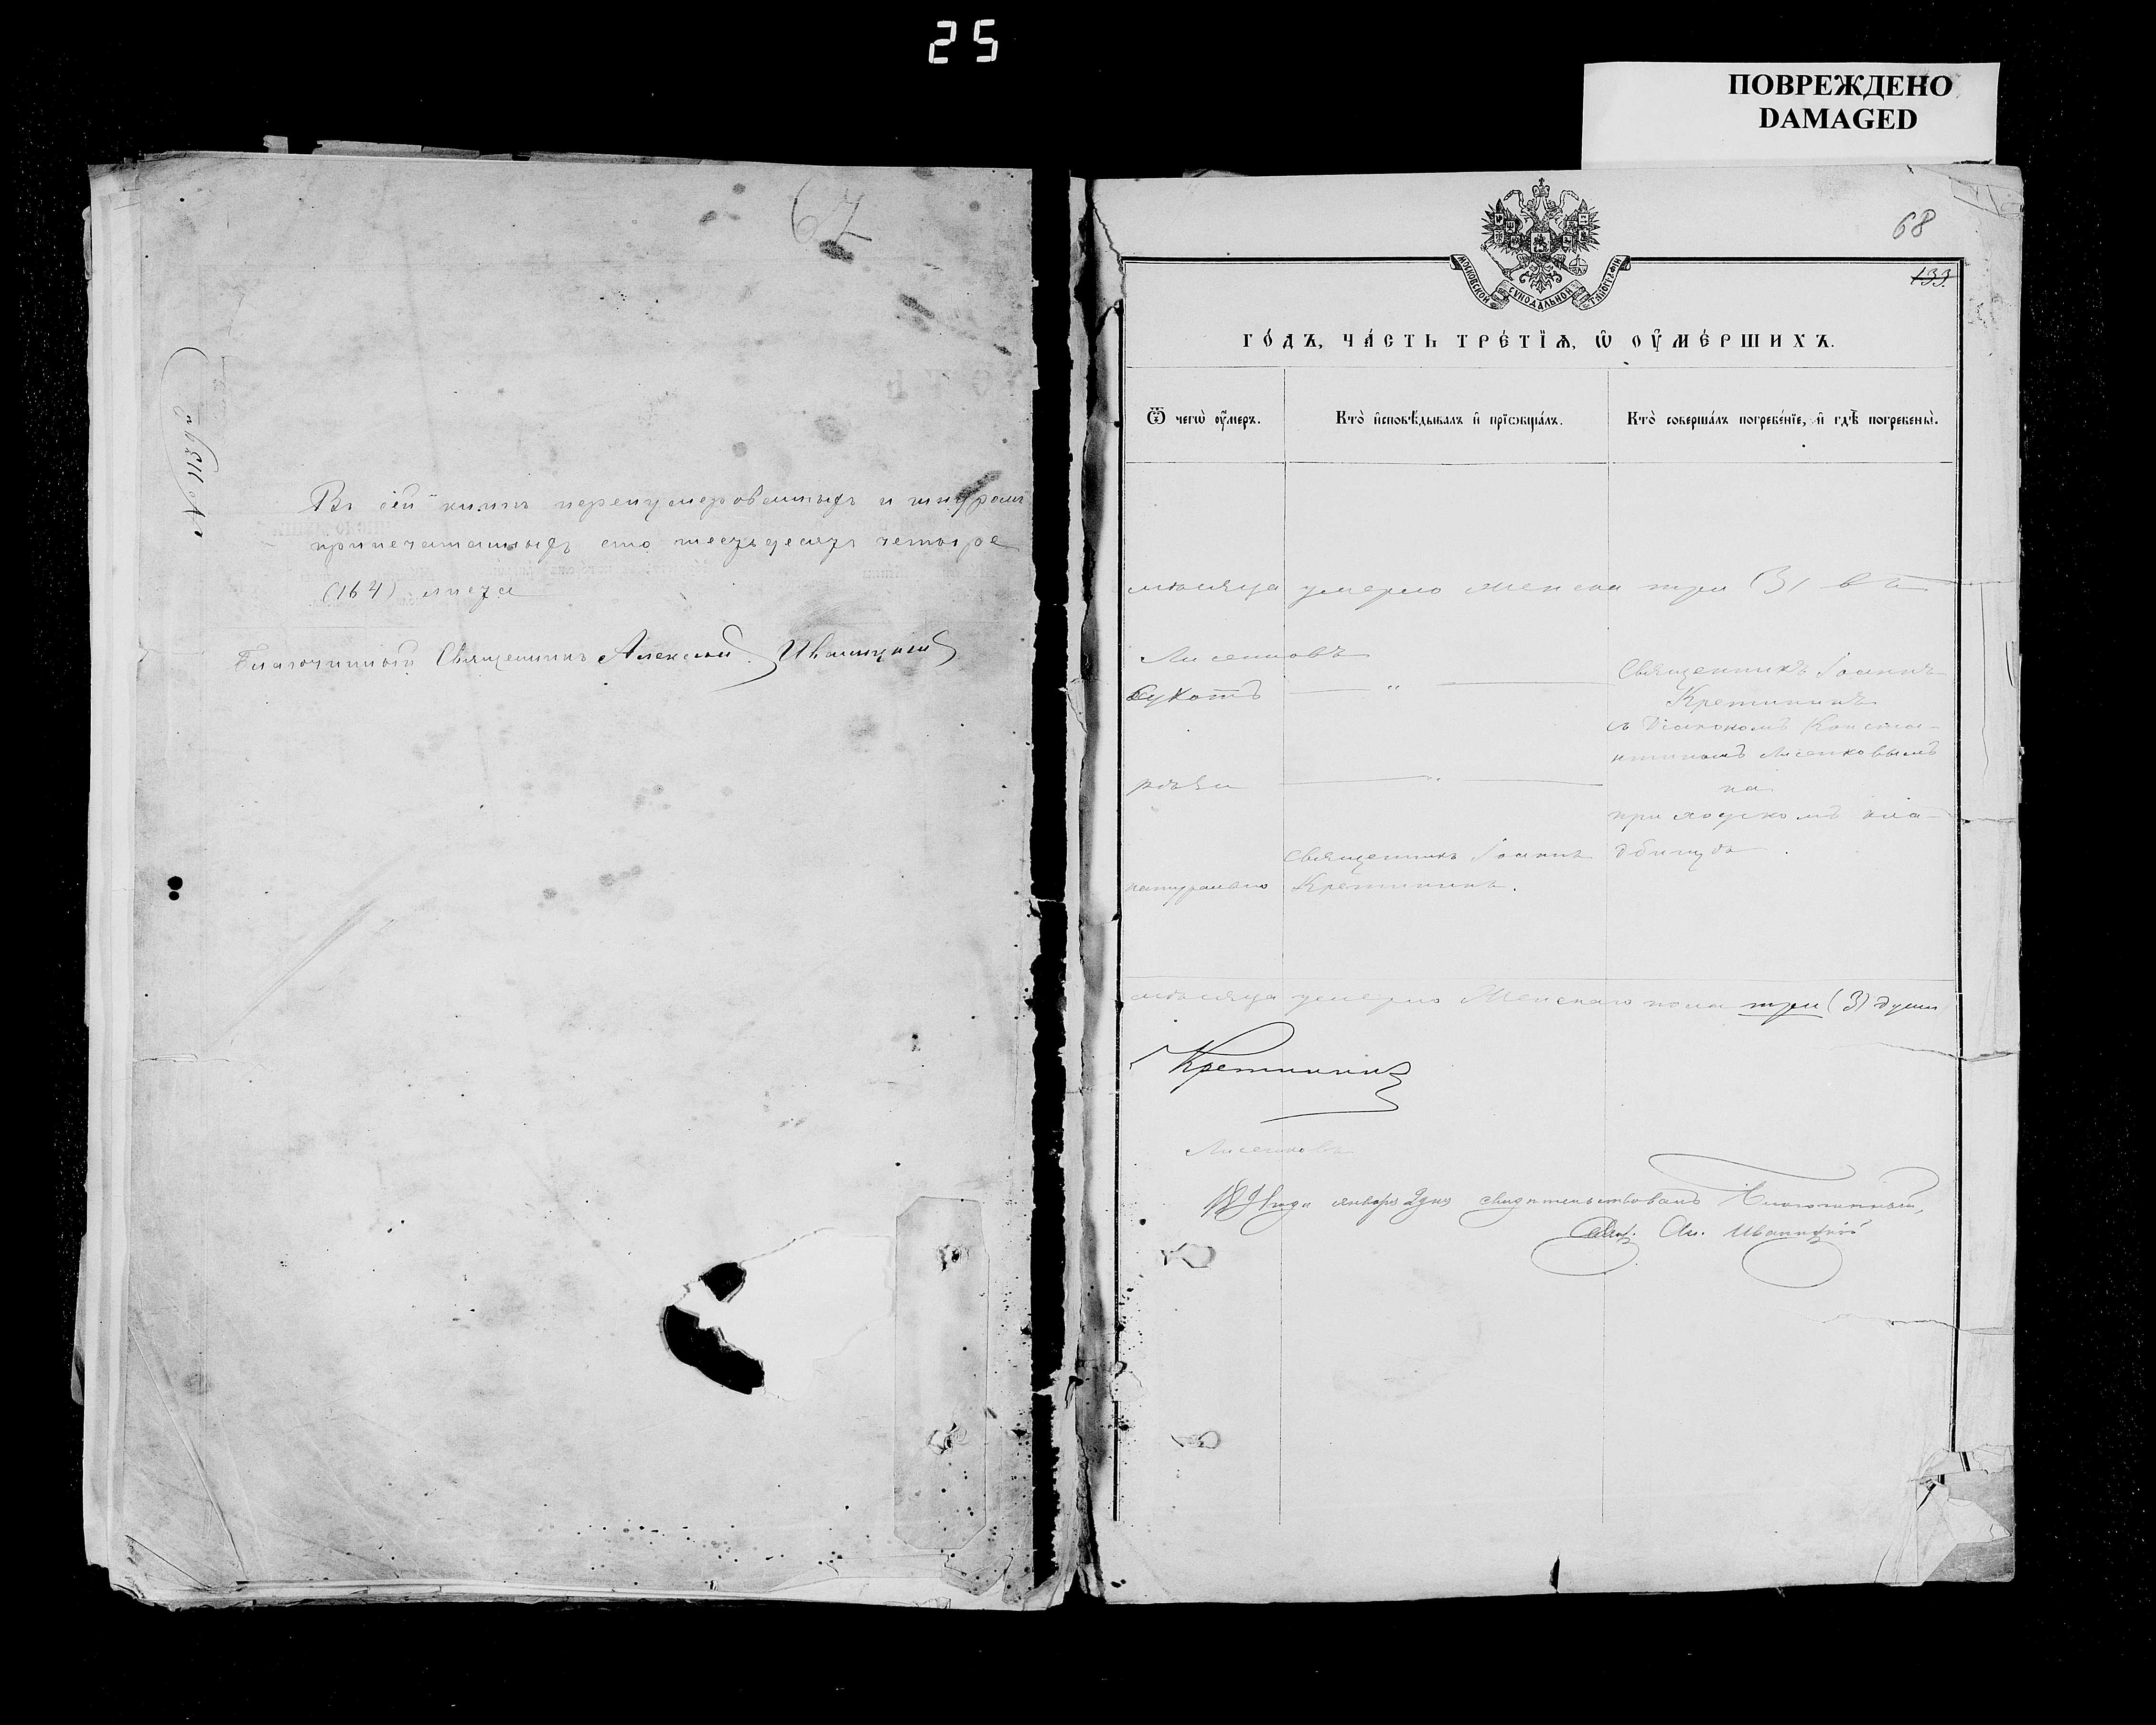 25
ПОВРЕЖДЕНО
DAMAGED
67
Въ сей книгѣ перенумерованныхъ и шнуромъ
припечатанныхъ сто шестьдесятъ четыре
(164) листа
Благочинный Священникъ Алексей Иваницкій
68
133.
МОСКОВСКОЙ СѴНОДАЛЬНОЙ ТИПОГРАФІИ
ГО́ДЪ, ЧА́СТЬ ТРЕ́ТЇѦ, Ѡ҆ ОУ҆МЕ́РШИХЪ.
Ѿ чегѡ̀ оу҆́меръ.
Кто̀ и҆сповѣ́дывалъ и҆ прїѡбща́лъ.
Кто̀ соверша́лъ погребе́нїе, и҆ гдѣ̀ погребены̀.
мѣсяца умерло женска три (3)
Лисенковъ
сухотъ
Священникъ Іоаннъ
Кретининъ
съ Діакономъ Констан-
тиномъ Лисенковымъ
рѣзи
на
приходскомъ кла-
Священникъ Іоаннъ
дбищѣ.
натурально
Кретининъ.
мѣсяца умерло Женскаго пола три (3) души
Кретининъ
Лисенковъ
года января 2 дня свидѣтельствовалъ Благочинный,
Свящ. Ал. Иваницкій